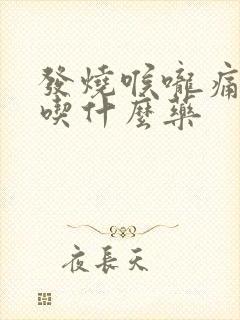 發燒喉嚨痛
喫什麼藥
夜長天